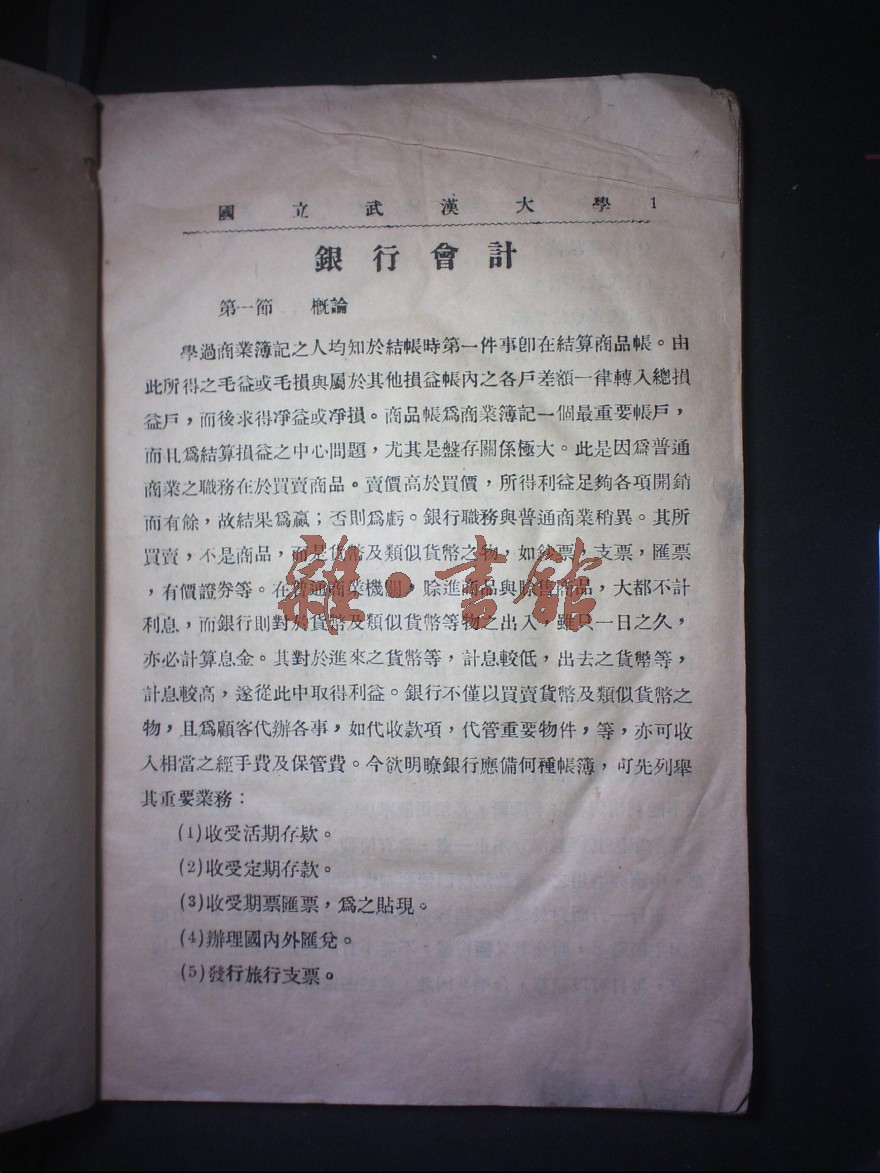 國立武漢大學 1
銀行會計
第一節 概論
學過商業簿記之人均知於結帳時第一件事卽在結算商品帳。由
此所得之毛益或毛損與屬於其他損益帳內之各戶差額一律轉入總損
益戶，而後求得凈益或凈損。商品帳爲商業簿記一個最重要帳戶，
而且爲結算損益之中心問題，尤其是盤存關係極大。此是因爲普通
商業之職務在於買賣商品。賣價高於買價，所得利益足夠各項開銷
而有餘，故結果爲贏；否則爲虧。銀行職務與普通商業稍異。其所
買賣，不是商品，而是貨幣及類似貨幣之物，如鈔票，支票，匯票
，有價證券等。在普通商業機關，賒進商品與賒售商品，大都不計
利息，而銀行則對於貨幣及類似貨幣等物之出入，雖只一日之久，
亦必計算息金。其對於進來之貨幣等，計息較低，出去之貨幣等，
計息較高，遂從此中取得利益。銀行不僅以買賣貨幣及類似貨幣之
物，且爲顧客代辦各事，如代收款項，代管重要物件，等，亦可收
入相當之經手費及保管費。今欲明瞭銀行應備何種帳簿，可先列舉
其重要業務：
(1)收受活期存欵。
(2)收受定期存款。
(3)收受期票匯票，爲之貼現。
(4)辦理國內外匯兌。
(5)發行旅行支票。
雜·書館